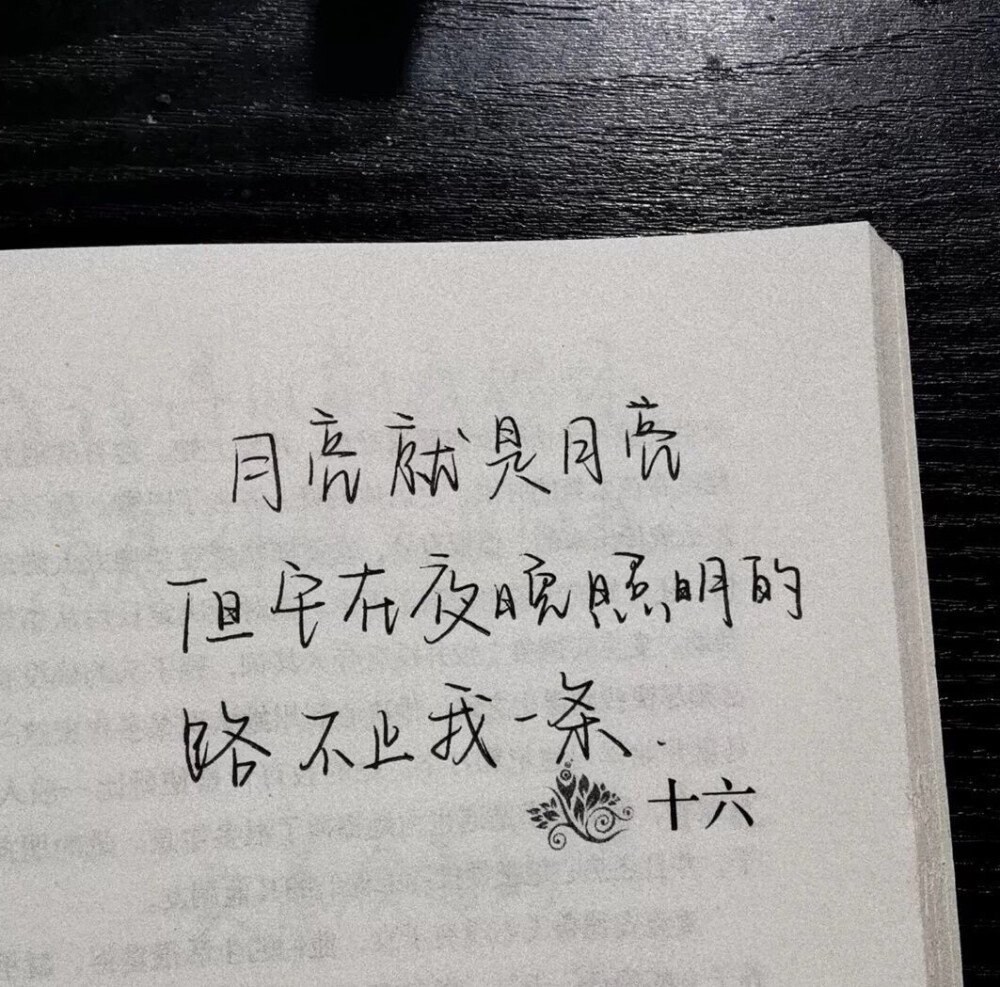 月亮就是月亮
但它在夜晚照明的
路不止我一条.
十六